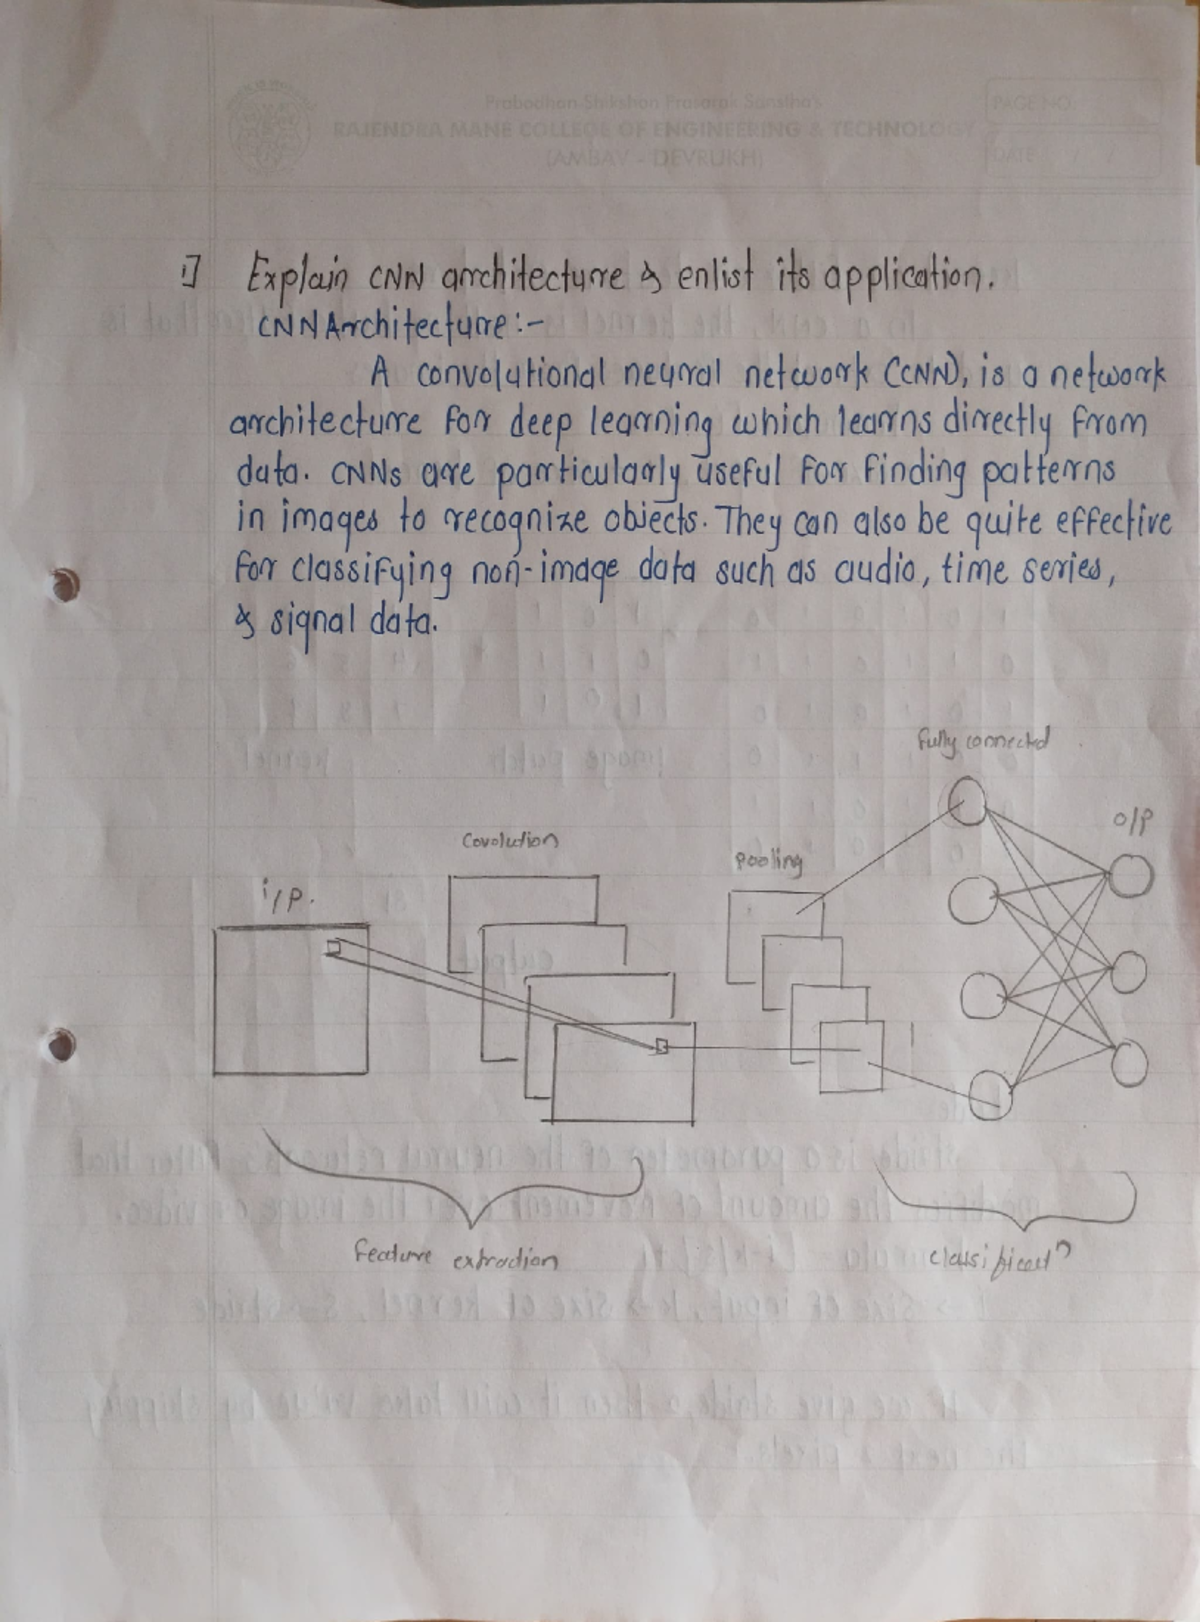 Prabodhan Shikshan Prasarak Sanstha's
RAJENDRA MANE COLLEGE OF ENGINEERING & TECHNOLOGY
(AMBAV - DEVRUKH)
PAGE NO.
DATE / /
1] Explain CNN architecture & enlist its application.
CNN Architecture :-
A convolutional neural network (CNN), is a network
architecture for deep learning which learns directly from
data. CNNs are particularly useful for finding patterns
in images to recognize objects. They can also be quite effective
for classifying non-image data such as audio, time series,
& signal data.
fully connected
o/p
Covolution
pooling
i/p.
feature extraction
classificatⁿ